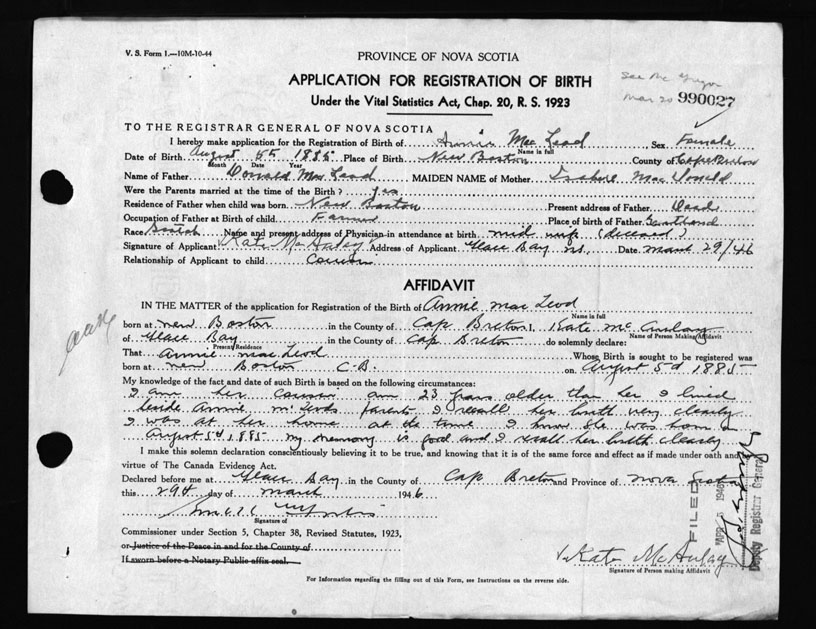 V. S. Form 1.—10M-10-44
PROVINCE OF NOVA SCOTIA
APPLICATION FOR REGISTRATION OF BIRTH
Under the Vital Statistics Act, Chap. 20, R. S. 1923
See Mc
Mar 20 990027
TO THE REGISTRAR GENERAL OF NOVA SCOTIA
I hereby make application for the Registration of Birth of Annie Mac Leod Sex Female
Name in full
Date of Birth August 5th 1885 Place of Birth New Boston County of Cape Breton
Month Date Year
Name of Father Donald Mac Leod MAIDEN NAME of Mother Isabel Mac Donald
Were the Parents married at the time of the Birth? yes
Residence of Father when child was born New Boston Present address of Father Dead
Occupation of Father at Birth of child Farmer Place of birth of Father Scotland
Race Scotch Name and present address of Physician in attendance at birth mid wife (deceased)
Signature of Applicant Kate McAulay Address of Applicant Glace Bay N.S. Date March 29/46
Relationship of Applicant to child Cousin
AFFIDAVIT
IN THE MATTER of the application for Registration of the Birth of Annie Mac Leod
Name in full
born at New Boston in the County of Cap Breton I, Kate McAulay
Name of Person Making Affidavit
of Glace Bay in the County of Cap Breton do solemnly declare:
Present Residence
That Annie Mac Leod Whose Birth is sought to be registered was
born at New Boston C.B. on August 5d 1885
My knowledge of the fact and date of such Birth is based on the following circumstances:
I am her cousin am 23 years older than her I lived
beside Annie McLeods parents I recall her birth very clearly
I was at her home at the time I know she was born on
August 5d 1885 my memory is good and I recall her birth clearly
I make this solemn declaration conscientiously believing it to be true, and knowing that it is of the same force and effect as if made under oath and by
virtue of The Canada Evidence Act.
Declared before me at Glace Bay in the County of Cap Breton and Province of Nova Scotia
this 29th day of March 1946
Signature of
Commissioner under Section 5, Chapter 38, Revised Statutes, 1923,
or Justice of the Peace in and for the County of
If sworn before a Notary Public affix seal.
Kate McAulay
Signature of Person making Affidavit
For Information regarding the filling out of this Form, see Instructions on the reverse side.
FILED
APR 5 1946
Deputy Registrar General